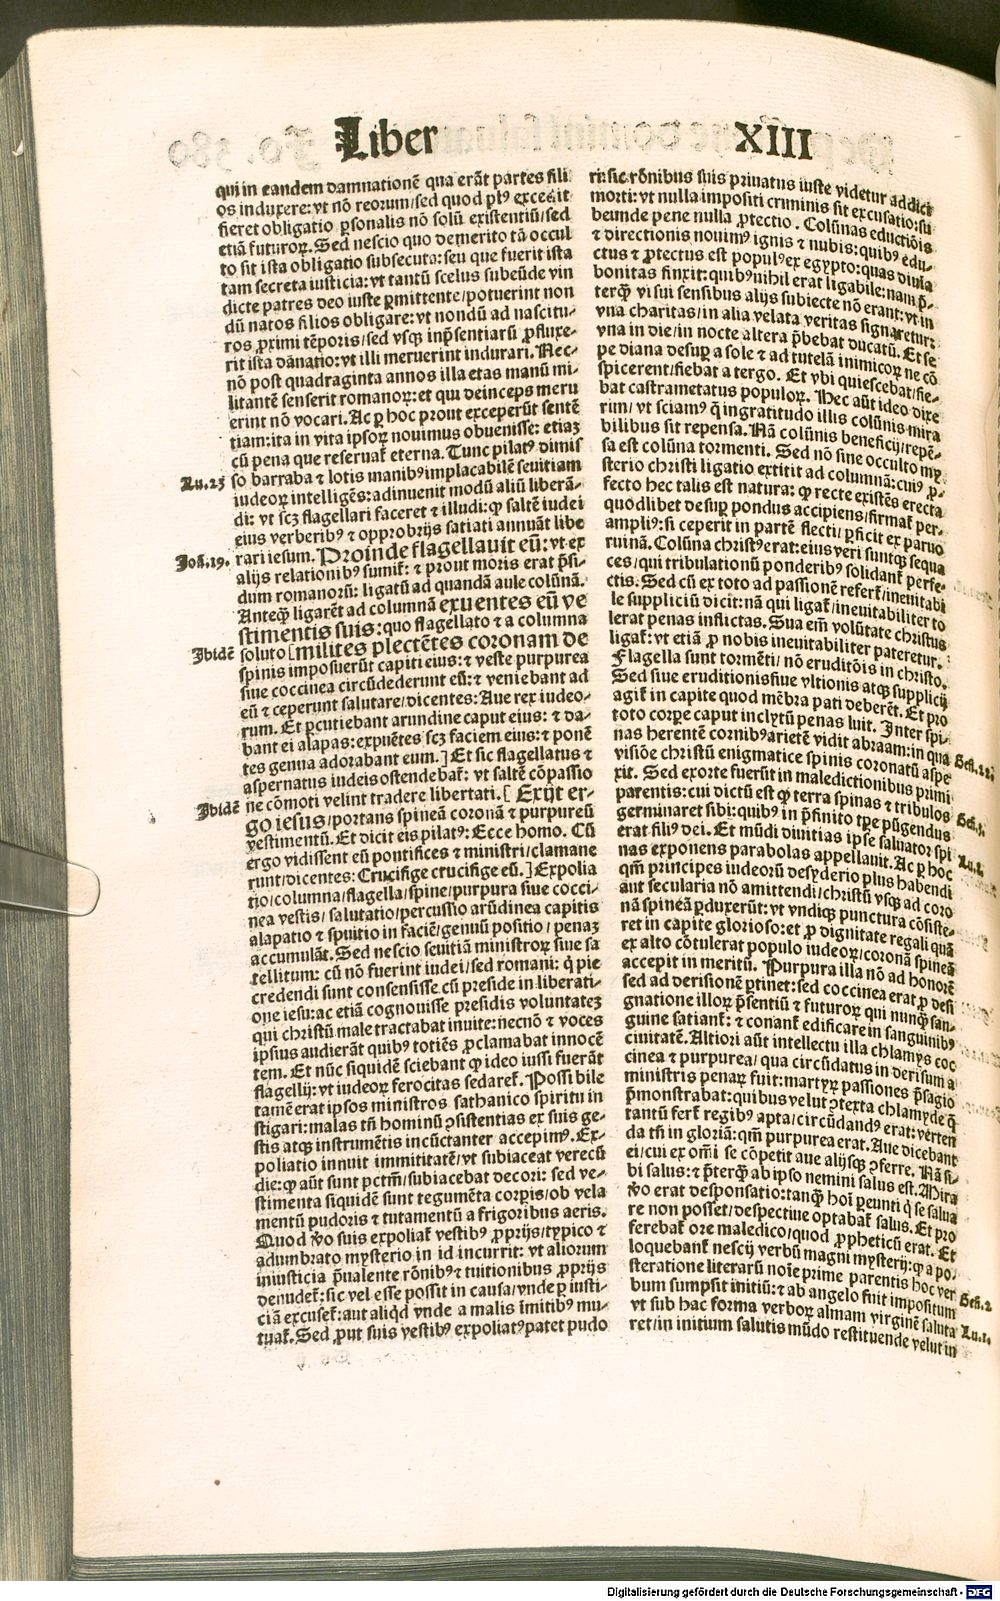 Liber XIII
qui in eandem damnationē qua erāt partes fili
os induxere: vt nō reorum/sed quod plꝰ excessit
fieret obligatio ꝑsonalis nō solū existentiū/sed
etiā futuroꝝ. Sed nescio quo demerito tā occul
to sit ista obligatio subsecuta: seu que fuerit ista
tam secreta iusticia: vt tantū scelus subeūde vin
dicte patres deo iuste ꝑmittente/potuerint non
dū natos filios obligare: vt nondū ad nascitu-
ros ꝓximi tēporis/sed vsqꝫ inp̄sentiarū ꝓfluxe-
rit ista dānatio: vt illi meruerint indurari. Nec-
nō post quadraginta annos illa etas manū mi-
litantē senserit romanoꝝ: et qui deinceps meru
erint nō vocari. Ac ꝑ hoc prout exceperūt sentē
tiam: ita in vita ipsoꝝ nouimus obuenisse: etiaꝫ
cū pena que reseruat̄ eterna. Tunc pilatꝰ dimis
Lu.23 so barraba ⁊ lotis manibꝰ implacabilē seuitiam
iudeoꝝ intelligēs: adinuenit modū aliū liberā-
di: vt scꝫ flagellari faceret ⁊ illudi: ꝙ saltē iudei
eius verberibꝰ ⁊ opprobrijs satiati annuāt libe
Joā.19. rari iesum. Proinde flagellauit eū: vt ex
alijs relationibꝰ sumit̄: ⁊ prout moris erat p̄si-
dum romanorū: ligatū ad quandā aule colūnā.
Anteqꝫ ligarēt ad columnā exuentes eū ve
stimentis suis: quo flagellato ⁊ a columna
Ibidē soluto [milites plectētes coronam de
spinis imposuerūt capiti eius: ⁊ veste purpurea
siue coccinea circūdederunt eū: ⁊ veniebant ad
eū ⁊ ceperunt salutare/dicentes: Aue rex iudeo-
rum. Et ꝑcutiebant arundine caput eius: ⁊ da-
bant ei alapas: expuētes scꝫ faciem eius: ⁊ ponē
tes genua adorabant eum.] Et sic flagellatus ⁊
aspernatus iudeis ostendebat̄: vt saltē cōpassio
Ibidē ne cōmoti velint tradere libertati. [Exijt er-
go iesus/portans spineā coronā ⁊ purpureū
vestimentū. Et dicit eis pilatꝰ: Ecce homo. Cū
ergo vidissent eū pontifices ⁊ ministri/clamane
runt/dicentes: Crucifige crucifige eū.] Expolia
tio/columna/flagella/spine/purpura siue cocci-
nea vestis/salutatio/percussio arūdinea capitis
alapatio ⁊ spuitio in faciē/genuū positio/penaꝫ
accumulāt. Sed nescio seuitiā ministroꝝ siue sa
tellitum: cū nō fuerint iudei/sed romani: q̇ pie
credendi sunt consensisse cū preside in liberati-
one iesu: ac etiā cognouisse presidis voluntateꝫ
qui christū male tractabat inuite: necnō ⁊ voces
ipsius audierāt quibꝰ totiēs ꝓclamabat innocē
tem. Et nūc siquidē sciebant ꝙ ideo iussi fuerāt
flagellij: vt iudeoꝝ ferocitas sedaret̄. Possibile
tamē erat ipsos ministros sathanico spiritu in
stigari: malas tn̄ hominū ꝯsistentias ex suis ge-
stis atqꝫ instrumētis incūctanter accepimꝰ. Ex-
poliatio innuit immititatē/vt subiaceat verecū
die: ꝙ aūt sunt pctm̄/subiacebat decori: sed ve-
stimenta siquidē sunt tegumēta corpis/ob vela
mentū pudoris ⁊ tutamentū a frigoribus aeris.
Quod v̄o suis expoliat̄ vestibꝰ ꝓprijs/typico ⁊
adumbrato mysterio in id incurrit: vt aliorum
iniusticia p̄ualente rōnibꝰ ⁊ tuitionibus ꝓprijs
denudet̄: sic vel esse possit in causa/vnde ꝑ iusti-
ciā excuset̄: aut aliqd vnde a malis īmitibꝰ mu-
tuat̄. Sed ꝓut suis vestibꝰ expoliatꝰ patet pudo
ri: sic rōnibus suis priuatus iuste videtur addict
morti: vt nulla impositi criminis sit excusatio: su
beunde pene nulla ꝓtectio. Colūnas eductiōis
⁊ directionis nouimꝰ ignis ⁊ nubis: quibꝰ edu-
ctus ⁊ ꝓtectus est populꝰ ex egypto: quas diuina
bonitas finxit: quibꝰ nihil erat ligabile: nam p̄-
terqꝫ visui sensibus alijs subiecte nō erant: vt in
vna charitas/in alia velata veritas signaretur:
vna in die/in nocte altera p̄bebat ducatū. Et se
pe diana desuꝑ a sole ⁊ ad tutelā inimicoꝝ ne cō
spicerent/fiebat a tergo. Et vbi quiescebat/fie-
bat castrametatus populoꝝ. Hec aūt ideo dixe
rim/vt sciamꝰ q̄ ingratitudo illis colūnis mira
bilibus sit repensa. Nā colūnis beneficij/repē-
sa est colūna tormenti. Sed nō sine occulto my
sterio christi ligatio extitit ad columnā: cuiꝰ ꝓ-
fecto hec talis est natura: ꝙ recte existēs erecta
quodlibet desuꝑ pondus accipiens/firmat̄ per-
ampliꝰ: si ceperit in partē flecti/ꝑficit ex paruo
ruinā. Colūna christꝰ erat: eius veri suntqꝫ sequa
ces/qui tribulationū ponderibꝰ solidant̄ perfe-
ctis. Sed cū ex toto ad passionē refert̄/ineuitabi
le suppliciū dicit: nā qui ligat̄/ineuitabiliter to
lerat penas inflictas. Sua em̄ volūtate christus
ligat̄: vt etiā ꝓ nobis ineuitabiliter pateretur.
Flagella sunt tormēti/nō eruditōis in christo.
Sed siue eruditionis siue vltionis atqꝫ supplicij
agit̄ in capite quod mēbra pati deberēt. Et pro
toto corpe caput inclytū penas luit. Inter spi-
nas herentē cornibꝰ arietē vidit abraam: in qua
visiōe christū enigmatice spinis coronatū aspe Geñ.22.
xit. Sed exorte fuerūt in maledictionibus primi
parentis: cui dictū est ꝙ terra spinas ⁊ tribulos
germinaret sibi: quibꝰ in p̄finito tpe pūgendus Geñ.3.
erat filiꝰ dei. Et mūdi diuitias ipse saluator spi
nas exponens parabolas appellauit. Ac ꝑ hoc Lu.8.
qm̄ principes iudeorū desyderio plus habendi
aut secularia nō amittendi/christū vsqꝫ ad coro
nā spineā ꝑduxerūt: vt vndiqꝫ punctura cōsiste-
ret in capite glorioso: et ꝓ dignitate regali quā
ex alto cōtulerat populo iudeoꝝ/coronā spineā
accepit in meritū. Purpura illa nō ad honorē
sed ad derisionē ꝑtinet: sed coccinea erat ꝓ desi
gnatione illoꝝ p̄sentiū ⁊ futuroꝝ qui nunqꝫ san-
guine satiant̄: ⁊ conant̄ edificare in sanguinibꝰ
ciuitatē. Altiori aūt intellectu illa chlamys coc
cinea ⁊ purpurea/qua circūdatus in derisum a
ministris penaꝝ fuit: martyꝝ passiones p̄sagio
p̄monstrabat: quibus velut ꝯtexta chlamyde q̄
tantū fert̄ regibꝰ apta/circūdandꝰ erat: verten
da tn̄ in gloriā: qm̄ purpurea erat. Aue dicebant
ei/cui ex om̄i se cōpetit aue alijsqꝫ ꝯferre. Nā si-
bi salus: ⁊ p̄terqꝫ ab ipso nemini salus est. Mira
v̄o erat desponsatio: tanqꝫ hoī ꝑeunti q̇ se salua
re non posset/despectiue optabat̄ salus. Et pro
ferebat̄ ore maledico/quod ꝓpheticū erat. Et
loquebant̄ nescij verbū magni mysterij: ꝙ a po-
steratione literarū noīe prime parentis hoc ver
bum sumpsit initiū: ⁊ ab angelo fuit impositum Geñ.2
vt sub hac forma verboꝝ almam virginē saluta
ret/in initium salutis mūdo restituende velut in Lu.1.
Digitalisierung gefördert durch die Deutsche Forschungsgemeinschaft - DFG